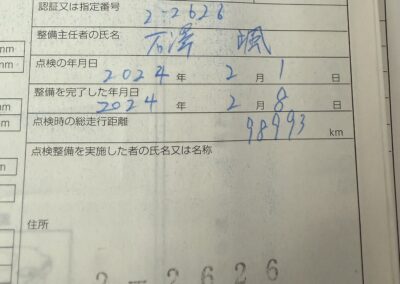 認証又は指定番号
2-2626
整備主任者の氏名
石澤 颯
点検の年月日
2024 年 2 月 1 日
整備を完了した年月日
2024 年 2 月 8 日
点検時の総走行距離
98993 km
点検整備を実施した者の氏名又は名称
住所
2-2626
mm
mm
mm
mm